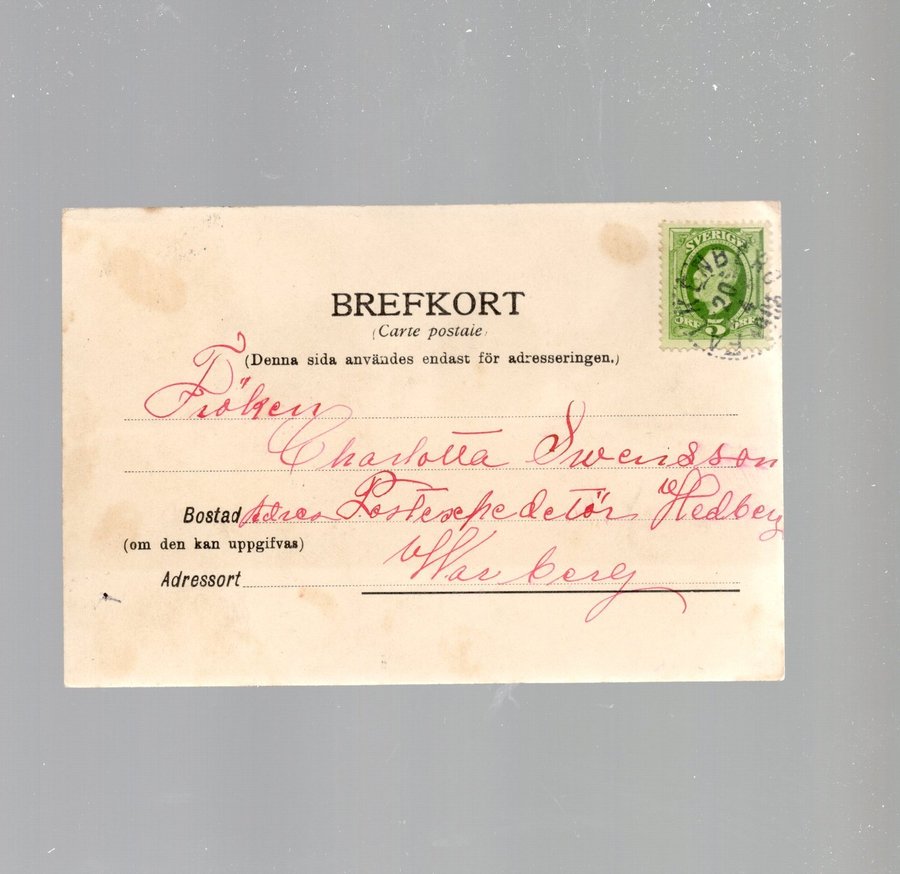 BREFKORT
(Carte postale)
(Denna sida användes endast för adresseringen.)
SVERIGE
5
ÖRE ÖRE
FALKENBERG
20
Fröken
Charlotta Swensson
Bostad Adress Postexpeditör Hedberg
(om den kan uppgifvas)
Warberg
Adressort